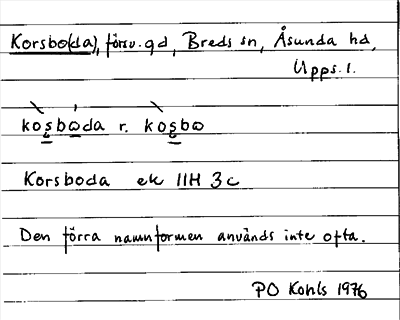 Korsbo(da), försv. gd, Breds sn, Åsunda hd,
Upps. l.
kosboda r. kosbo
Korsboda ek 11H 3c
Den förra namnformen används inte ofta.
PO Kohls 1976